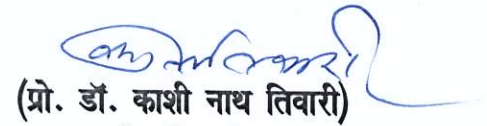 (प्रो. डॉ. काशी नाथ तिवारी)